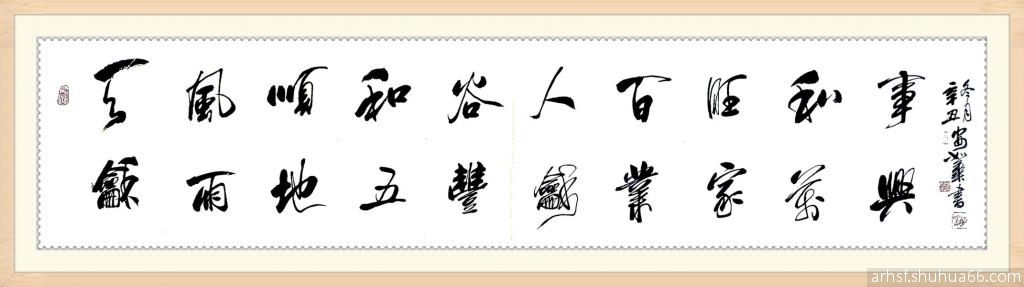 天龢
風雨
順地
和五
谷豐
人龢
百業
旺家
和萬
事興
辛丑
冬月
書
arhsf.shuhua66.com